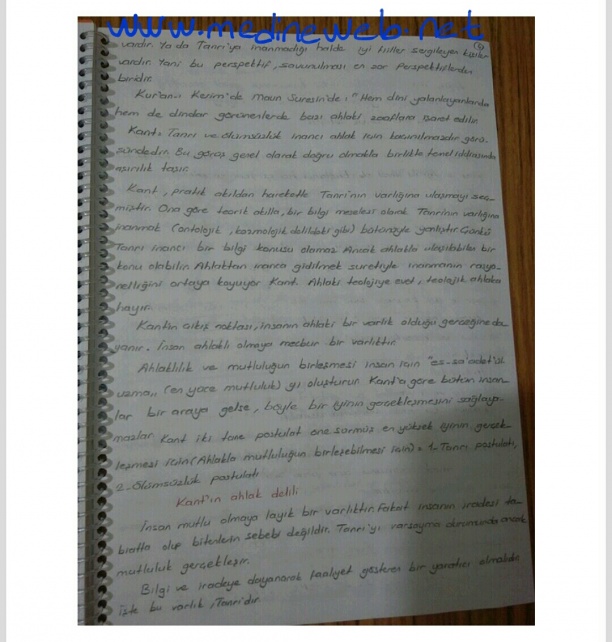 www.medineweb.net
vardır. Ya da Tanrı'ya inanmadığı halde iyi fiiller sergileyen kişiler
vardır. Yani bu perspektif, savunulması en zor perspektiflerden
biridir.
Kur'an-ı Kerim'de Maun Suresin'de: "Hem dini yalanlayanlarda
hem de dindar görünenlerde bazı ahlaki zaaflara işaret edilir.
Kant: Tanrı ve ölümsüzlük inancı ahlak için kaçınılmazdır görü-
şündedir. Bu görüş genel olarak doğru olmakla birlikte temel iddiasında
aşırılık taşır.
Kant, pratik akıldan hareketle Tanrı'nın varlığına ulaşmayı seç-
miştir. Ona göre teorik akılla, bir bilgi meselesi olarak Tanrı'nın varlığına
inanmak (ontolojik, kozmolojik delildeki gibi) bütünüyle yanlıştır. Çünkü
Tanrı inancı bir bilgi konusu olamaz. Ancak ahlakla ulaşılabilen bir
konu olabilir. Ahlaktan inanca gidilmek suretiyle inanmanın rasyo-
nelliğini ortaya koyuyor Kant. Ahlaki teolojiye evet, teolojik ahlaka
hayır.
Kant'ın çıkış noktası, insanın ahlaki bir varlık olduğu gerçeğine da-
yanır. İnsan ahlaklı olmaya mecbur bir varlıktır.
Ahlaklılık ve mutluluğun birleşmesi insan için "es-sa'adet'ül
uzmayı (en yüce mutluluk) yı oluşturur. Kant'a göre bütün insan-
lar bir araya gelse, böyle bir iyinin gerçekleşmesini sağlaya-
mazlar. Kant iki tane postulat öne sürmüş en yüksek iyinin gerçek-
leşmesi için (Ahlakla mutluluğun birleşebilmesi için) = 1- Tanrı postulatı,
2- Ölümsüzlük postulatı
Kant'ın ahlak delili
İnsan mutlu olmaya layık bir varlıktır. Fakat insanın iradesi ta-
biatta olup bitenlerin sebebi değildir. Tanrı'yı varsayma durumunda ancak
mutluluk gerçekleşir.
Bilgi ve iradeye dayanarak faaliyet gösteren bir yaratıcı olmalıdır.
İşte bu varlık, Tanrı'dır.